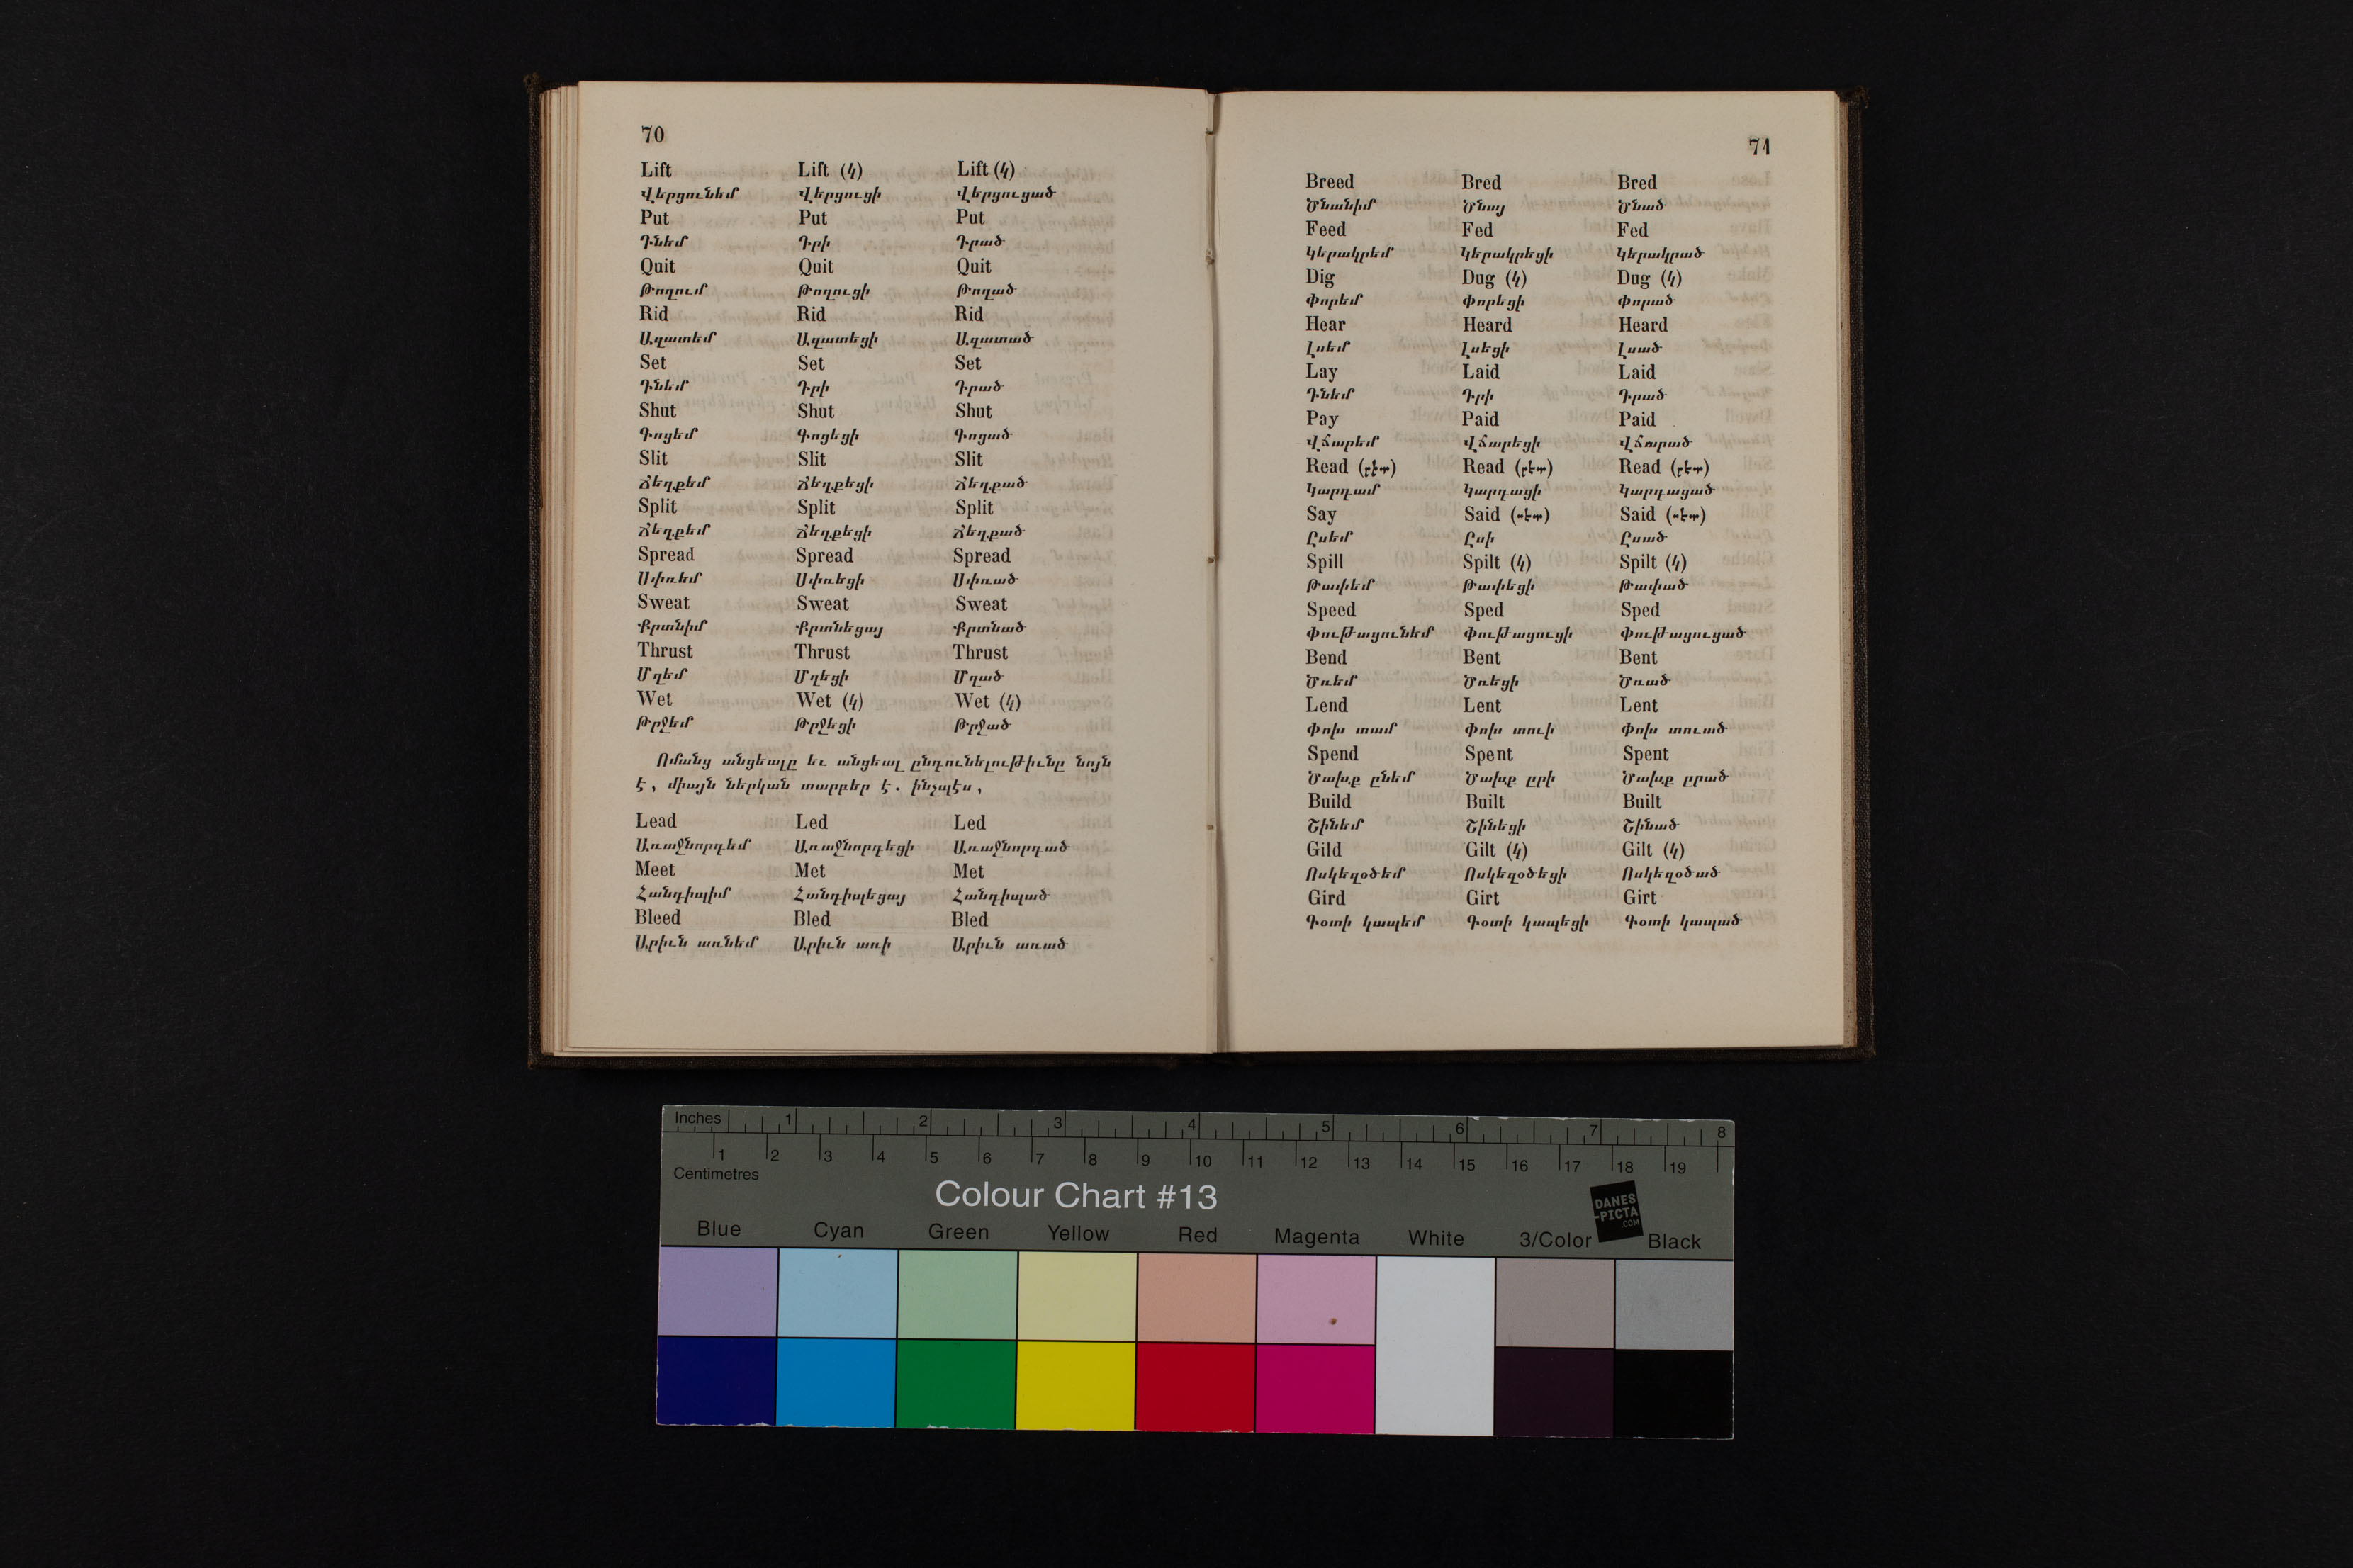 70
Lift Lift (կ) Lift (կ)
Վերցունեմ Վերցուցի Վերցուցած
Put Put Put
Դնեմ Դրի Դրած
Quit Quit Quit
Թողում Թողուցի Թողած
Rid Rid Rid
Ազատեմ Ազատեցի Ազատած
Set Set Set
Դնեմ Դրի Դրած
Shut Shut Shut
Գոցեմ Գոցեցի Գոցած
Slit Slit Slit
Ճեղքեմ Ճեղքեցի Ճեղքած
Split Split Split
Ճեղքեմ Ճեղքեցի Ճեղքած
Spread Spread Spread
Սփռեմ Սփռեցի Սփռած
Sweat Sweat Sweat
Քրտնիմ Քրտնեցայ Քրտնած
Thrust Thrust Thrust
Մղեմ Մղեցի Մղած
Wet Wet (կ) Wet (կ)
Թրջեմ Թրջեցի Թրջած
Ոմանց անցեալը եւ անցեալ ընդունելութիւնը նոյն
է, միայն ներկան տարբեր է. ինչպէս,
Lead Led Led
Առաջնորդեմ Առաջնորդեցի Առաջնորդած
Meet Met Met
Հանդիպիմ Հանդիպեցայ Հանդիպած
Bleed Bled Bled
Արիւն առնեմ Արիւն առի Արիւն առած
71
Breed Bred Bred
Ծնանիմ Ծնայ Ծնած
Feed Fed Fed
Կերակրեմ Կերակրեցի Կերակրած
Dig Dug (կ) Dug (կ)
Փորեմ Փորեցի Փորած
Hear Heard Heard
Լսեմ Լսեցի Լսած
Lay Laid Laid
Դնեմ Դրի Դրած
Pay Paid Paid
Վճարեմ Վճարեցի Վճարած
Read (րիտ) Read (րէտ) Read (րէտ)
Կարդամ Կարդացի Կարդացած
Say Said (սէտ) Said (սէտ)
Ըսեմ Ըսի Ըսած
Spill Spilt (կ) Spilt (կ)
Թափեմ Թափեցի Թափած
Speed Sped Sped
Փութացունեմ Փութացուցի Փութացուցած
Bend Bent Bent
Ծռեմ Ծռեցի Ծռած
Lend Lent Lent
Փոխ տամ Փոխ տուի Փոխ տուած
Spend Spent Spent
Ծախք ընեմ Ծախք ըրի Ծախք ըրած
Build Built Built
Շինեմ Շինեցի Շինած
Gild Gilt (կ) Gilt (կ)
Ոսկեզօծեմ Ոսկեզօծեցի Ոսկեզօծած
Gird Girt Girt
Գօտի կապեմ Գօտի կապեցի Գօտի կապած
Inches 1 2 3 4 5 6 7 8
1 2 3 4 5 6 7 8 9 10 11 12 13 14 15 16 17 18 19
Centimetres
Colour Chart #13
DANES
-PICTA
.COM
Blue Cyan Green Yellow Red Magenta White 3/Color Black